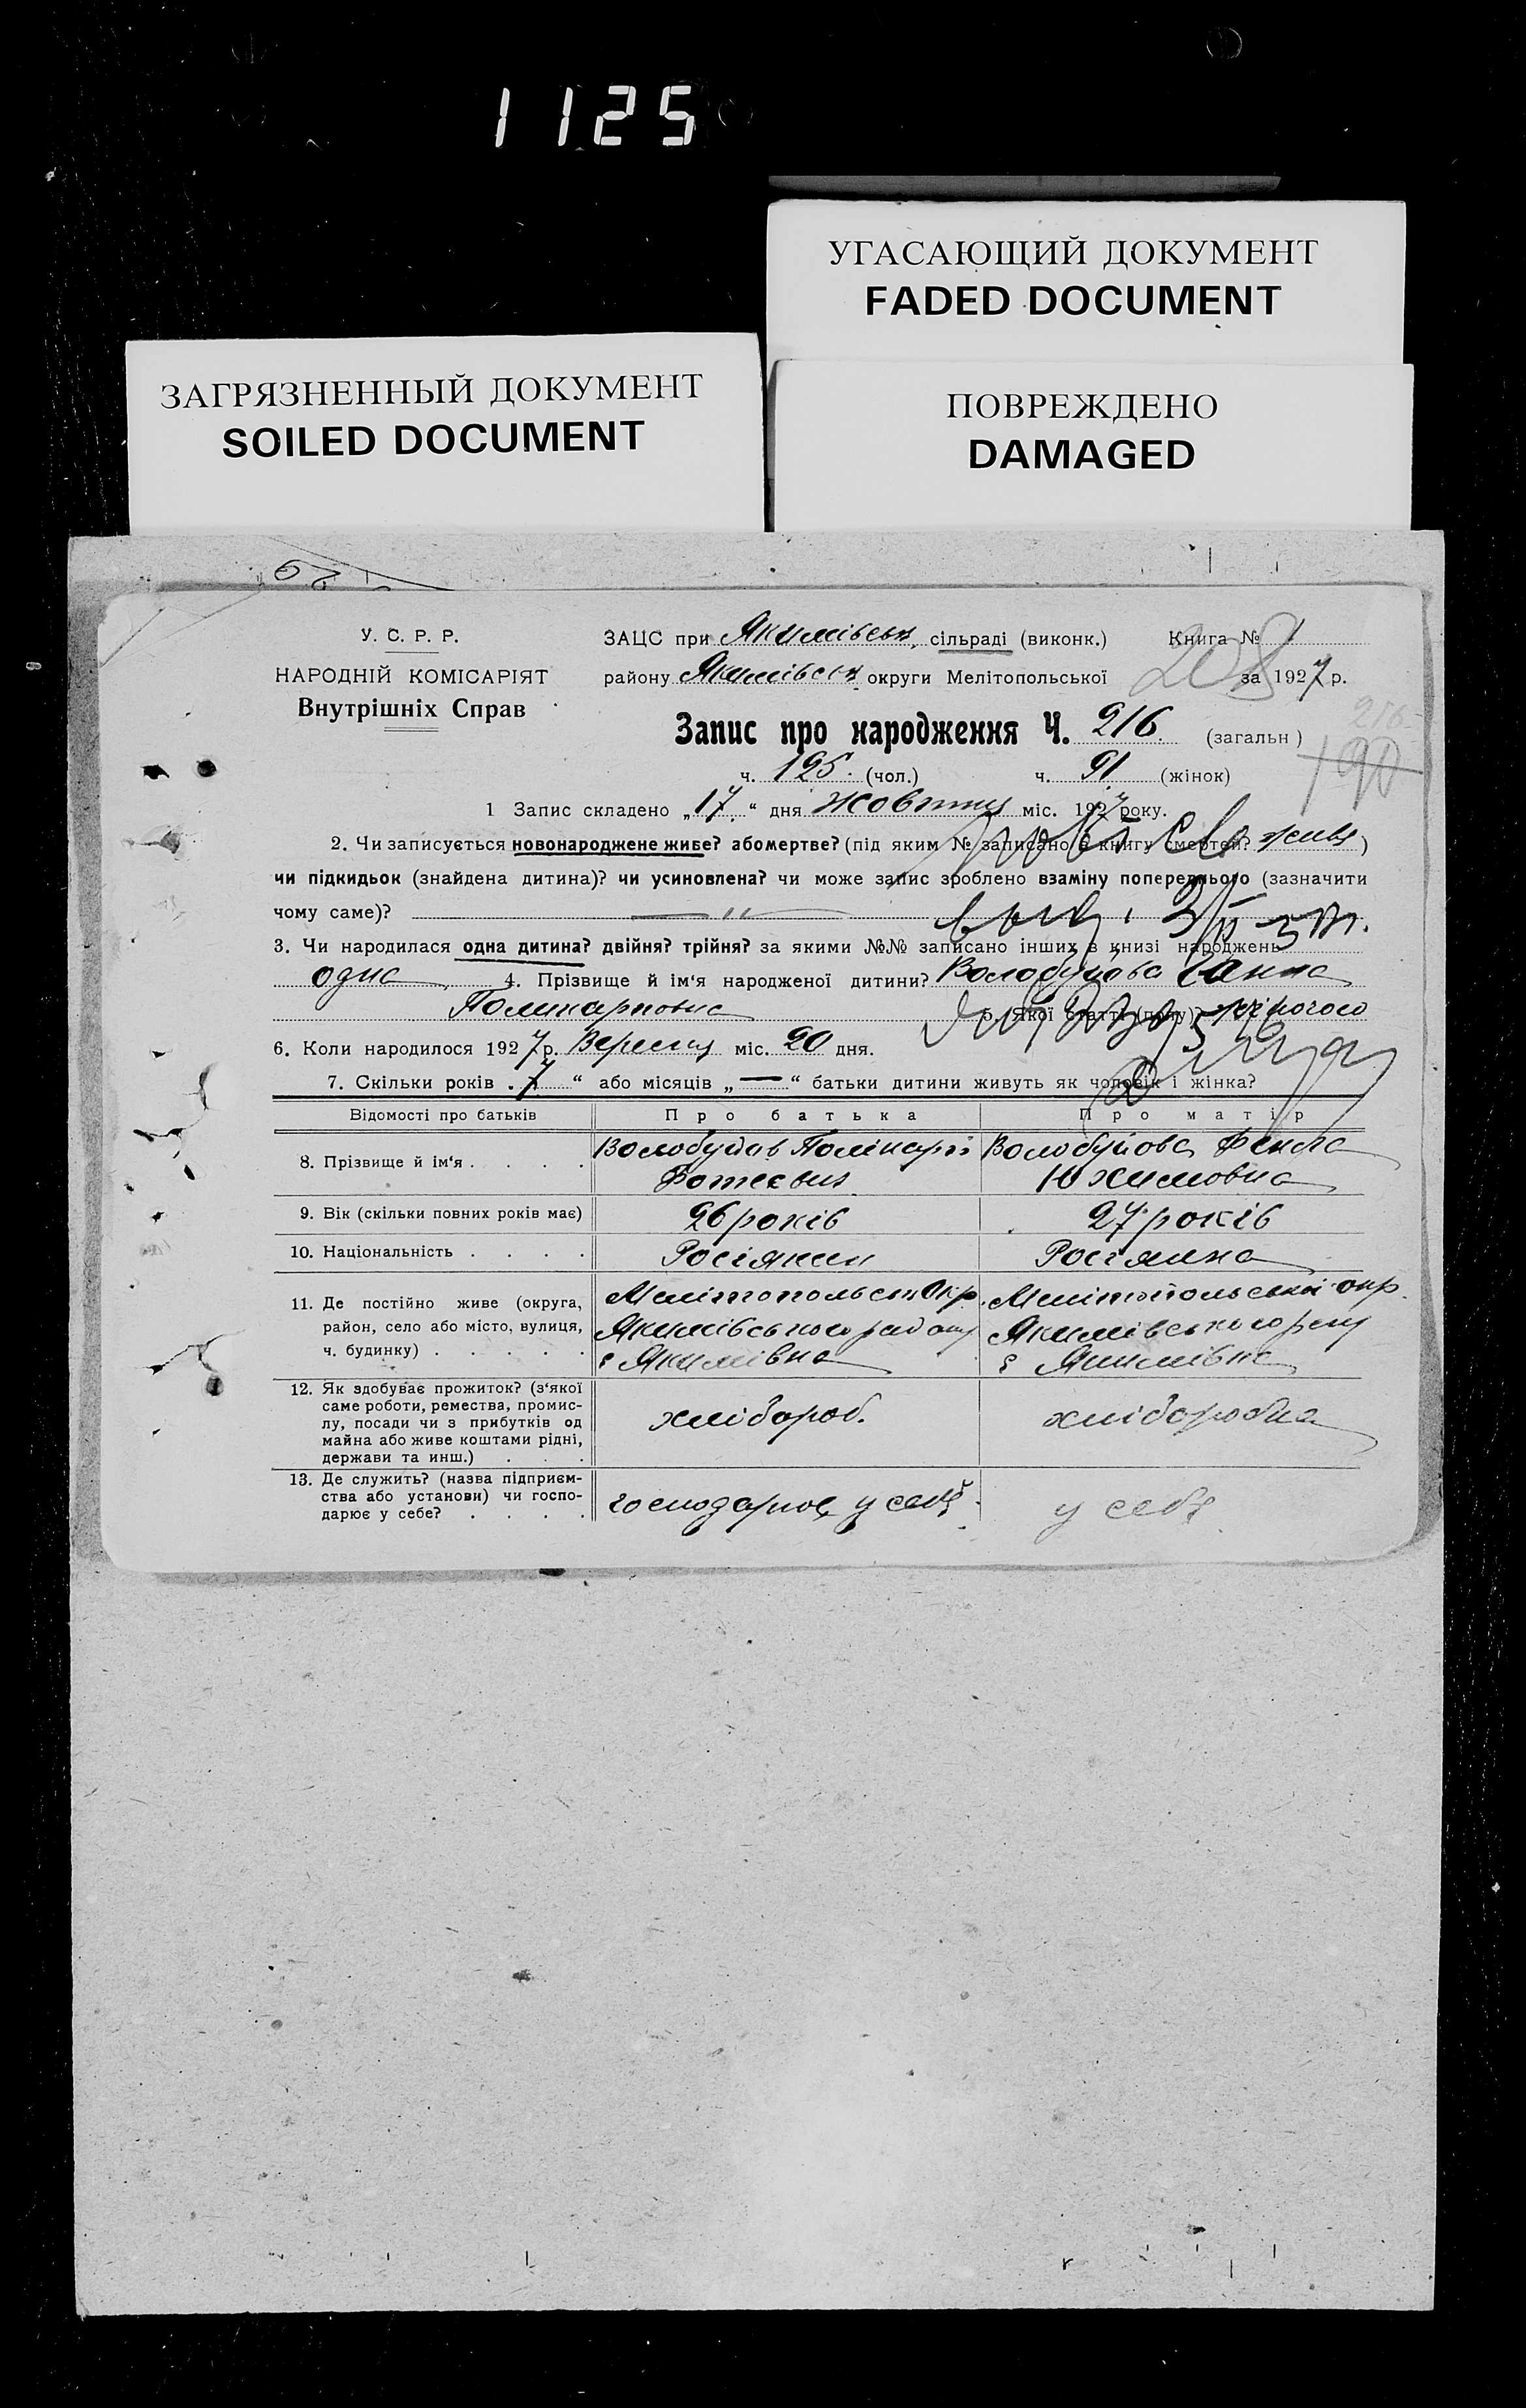 1125
УГАСАЮЩИЙ ДОКУМЕНТ
FADED DOCUMENT
ЗАГРЯЗНЕННЫЙ ДОКУМЕНТ
SOILED DOCUMENT
ПОВРЕЖДЕНО
DAMAGED
У. С. Р. Р.
НАРОДНІЙ КОМІСАРІЯТ
Внутрішніх Справ
ЗАЦС при Якимівськ. сільраді (виконк.) Книга № 1
району Якимівськ округи Мелітопольської за 1927 р.
208
Запис про народження Ч. 216 (загальн)
216
190
ч. 125. (чол.) ч. 91 (жінок)
1 Запис складено „17“ дня Жовтня міс. 1927 року.
2. Чи записується новонароджене живе? або мертве? (під яким № записано в книгу смертей? живе)
чи підкидьок (знайдена дитина)? чи усиновлена? чи може запис зроблено взаміну попереднього (зазначити
чому саме)? — " —
3. Чи народилася одна дитина? двійня? трійня? за якими №№ записано інших в книзі народжень
одна 4. Прізвище й ім‘я народженої дитини? Волобуйова Ганна
Полікарповна 5. Якої статті (полу)? жіночого
6. Коли народилося 1927 р. Вересня міс. 20 дня.
7. Скільки років „7“ або місяців „—“ батьки дитини живуть як чоловік і жінка?
Відомості про батьків Про батька Про матір
8. Прізвище й ім‘я . . . . Волобуйов Полікарп Волобуйова Фекла
Фотєєвич Юхимовна
9. Вік (скільки повних років має) 26 років 27 років
10. Національність . . . . Росіянин Росіянка
11. Де постійно живе (округа, район, село або місто, вулиця, ч. будинку) . . . . .
Мелітопольськ Окр. Мелітопольської окр.
Якимівського району Якимівського рену
с Якимівка с Якимівка
12. Як здобуває прожиток? (з‘якої саме роботи, ремества, промислу, посади чи з прибутків од майна або живе коштами рідні, держави та инш.) . . .
хлібороб. хліборобка
13. Де служить? (назва підприємства або установи) чи господарює у себе? . . . .
господарює у себе у себе